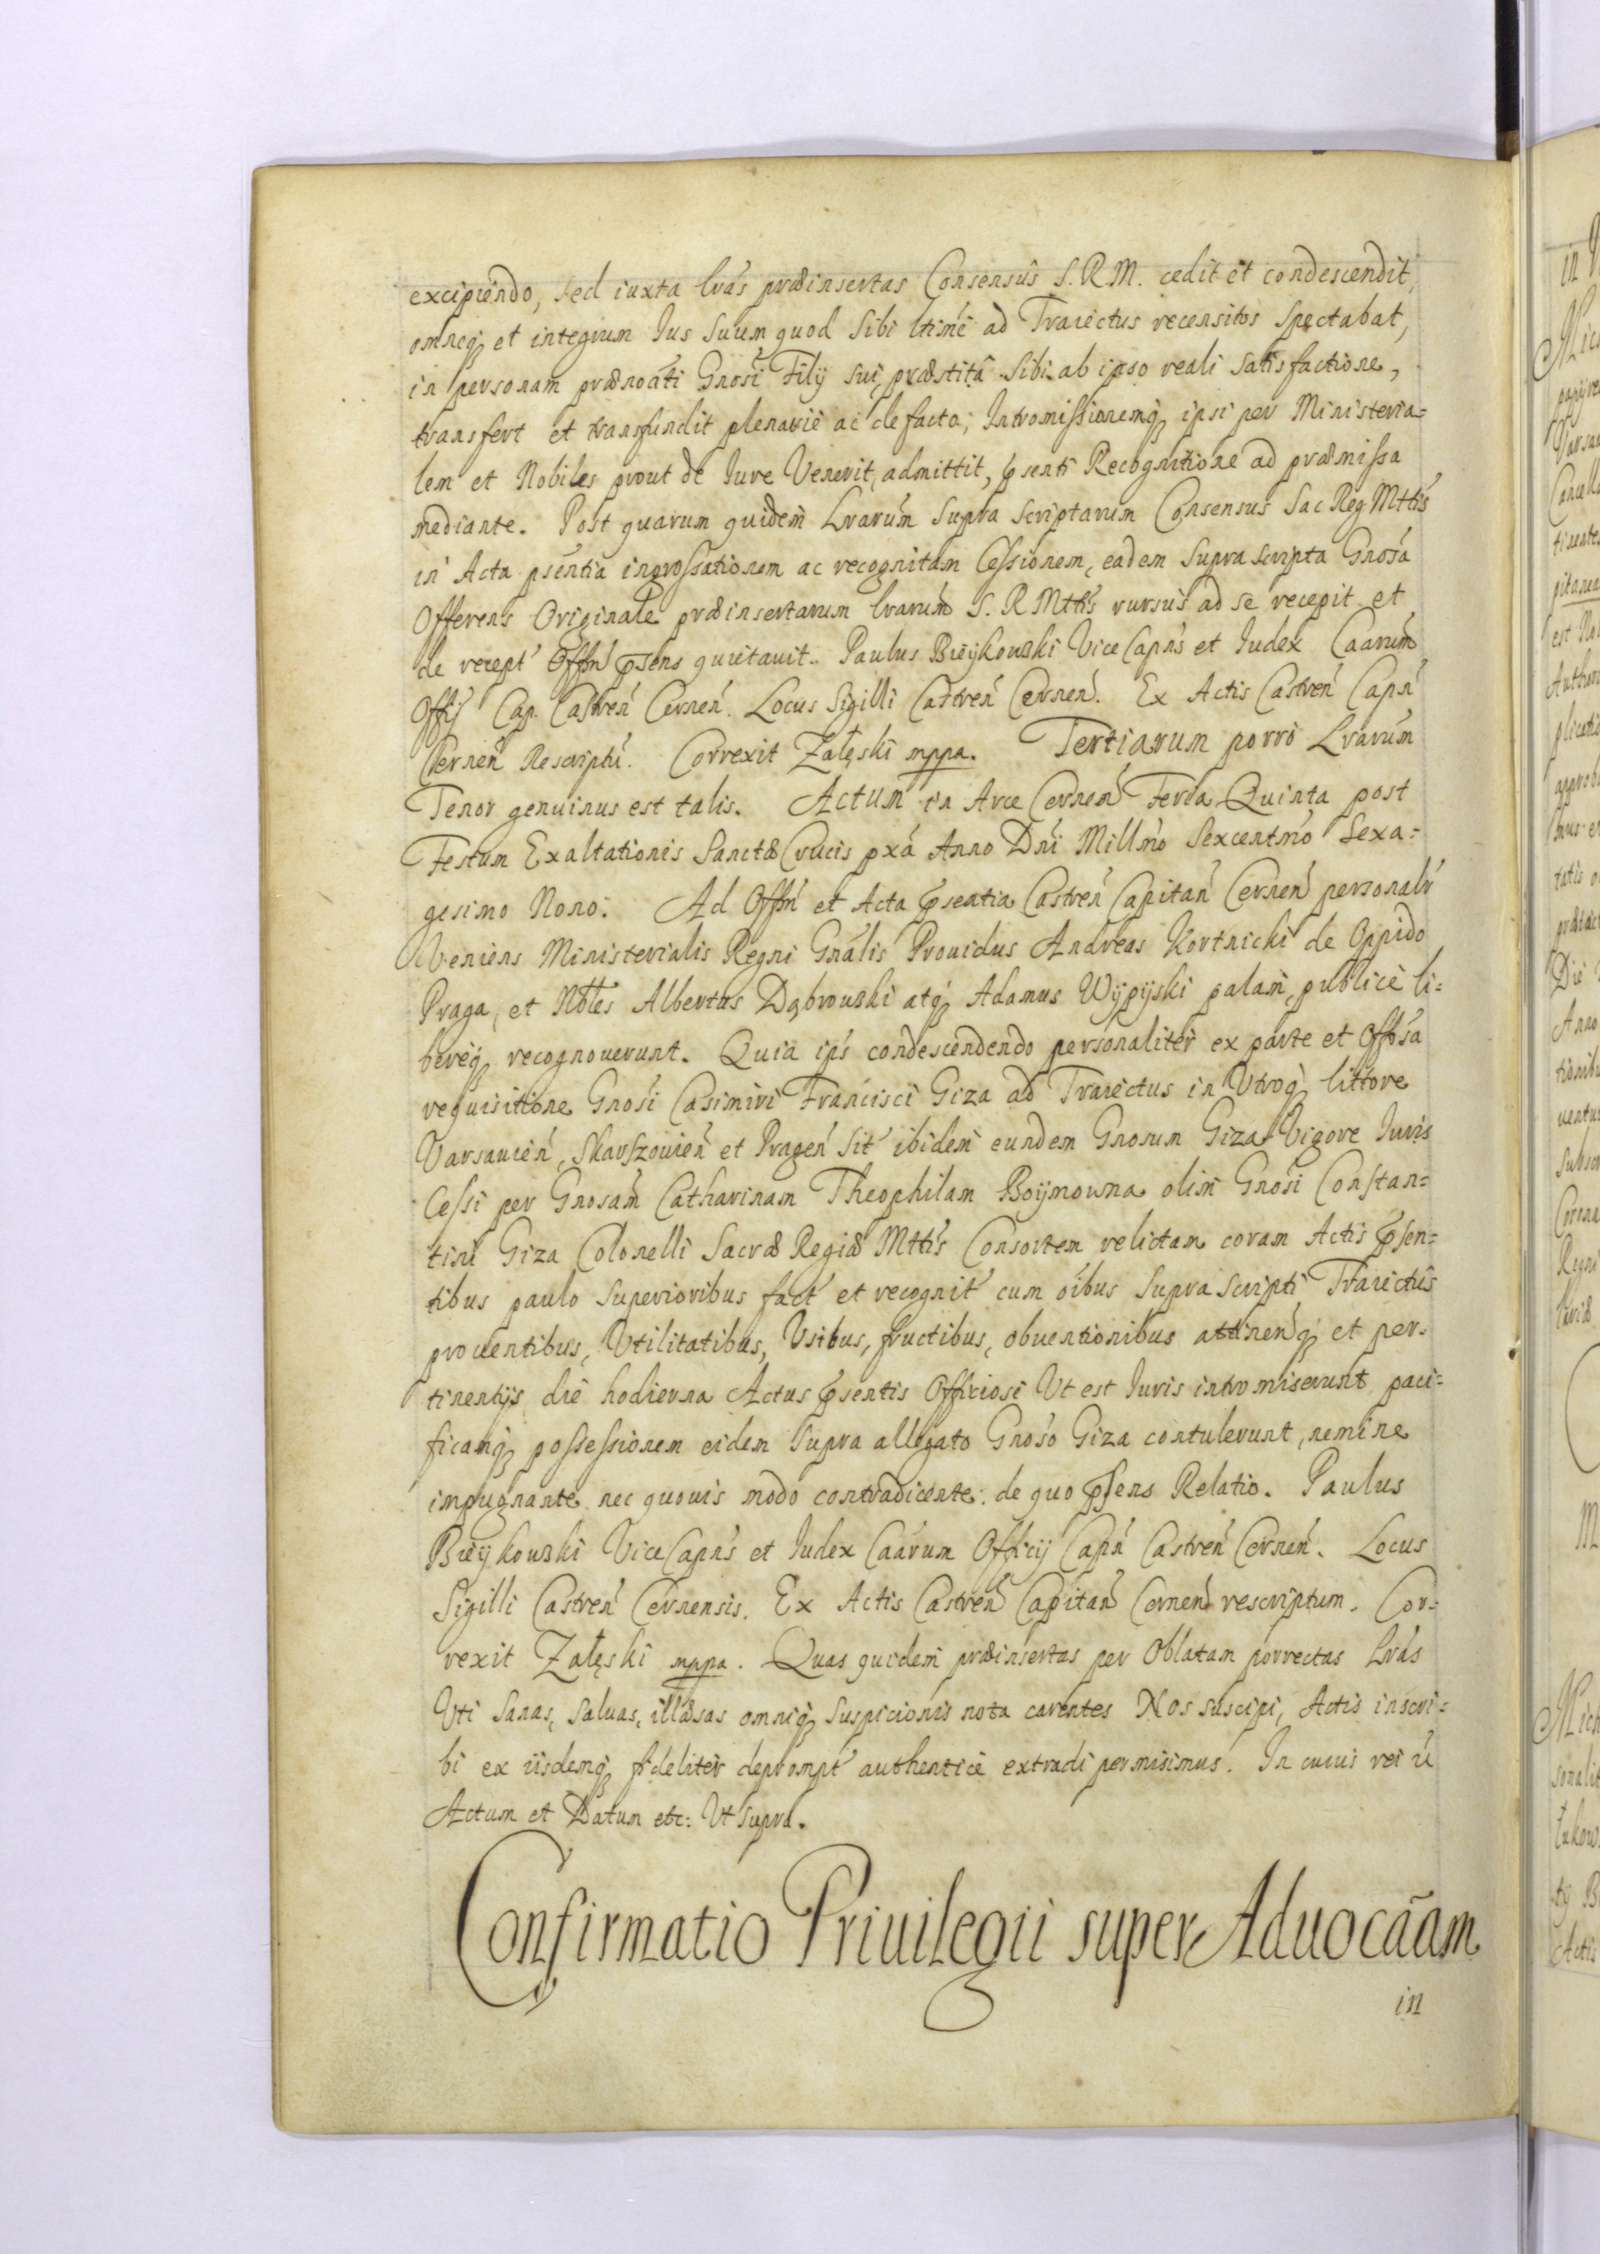 excipiendo, sed iuxta lras præinsertas Consensûs S. R M. cedit et condescendit,
omneq; et integrum Ius Suum quod Sibi ltimé ad Traiectus recensitos Spectabat,
in personam prænoati Gnosi Filij sui, præstitâ Sibi ab ipso reali Satisfactione,
transfert et transfundit plenarié ac de facto; Intromissionemq; ipsi per Ministeria=
lem et Nobiles prout de Iure Venerit, admittit, psenti Recognitione ad præmissa
mediante. Post quarum quidem Lrarum Supra Scriptarum Consensus Sac Reg Mttis
in Acta psentia ingrossationem ac recognitam Cessionem, eadem Supra scripta Gnosa
Offerens Originale præinsertarum lrarum S. R Mttis rursus ad se recepit et
de recept Offm psens quietauit. Paulus Bieÿkowski Vice Capns et Iudex Caarum
Offij Cap. Castren Cernen. Locus Sigilli Castren Cernen. Ex Actis Castren Capn
Cernen Rescriptu. Correxit Załęski mppa. Tertiarum porrò Lrarum
Tenor genuinus est talis. Actum in Arce Cernen Feria Quinta post
Festum Exaltationis Sanctæ Crucis pxa Anno Dni Millmo Sexcentmo Sexa=
gesimo Nono. Ad Offm et Acta psentia Castren Capitan Cernen personalr
Veniens Ministerialis Regni Gnalis Prouidus Andreas Kortnicki de Oppido
Praga, et Nbles Albertus Dąbrowski atq; Adamus Wÿpÿski palam, publicè li=
bereq; recognouerunt. Quia ips condescendendo personaliter ex parte et Offosa
requisitione Gnosi Casimiri Francisci Giza ad Traiectus in Vtroq; littore
Varsauien, Skarszouien et Pragen Sit ibidem eundem Gnosum Giza Vigore Iuris
Cessi per Gnosam Catharinam Theophilam Boÿmowna olim Gnosi Constan=
tini Giza Colonelli Sacræ Regiæ Mttis Consortem relictam coram Actis psen=
tibus paulo Superioribus fact et recognit cum oibus Supra scripti Traiectûs
prouentibus, Vtilitatibus, Vsibus, fructibus, obuentionibus attinenq; et per=
tinentijs die hodierna Actus psentis Officiosi Vt est Iuris intromiserunt paci=
ficamq; possessionem eidem Supra allegato Gnoso Giza contulerunt, nemine
impugnante nec quouis modo contradicente. de quo psens Relatio. Paulus
Bieÿkowski Vice Capns et Iudex Caarum Officij Capn Castren Cernen. Locus
Sigilli Castren Cernensis. Ex Actis Castren Capitan Cernen rescriptum. Cor=
rexit Załęski mppa. Quas quidem præinsertas per Oblatam porrectas Lras
Vti Sanas, Saluas, illæsas omniq; Suspicionis nota carentes Nos suscipi, Actis inscri=
bi ex iisdemq; fideliter deprompt authenticè extradi permisimus. In cuius rei &
Actum et Datum etc: Vt Supra.
Confirmatio Priuilegii super Aduocãam
in